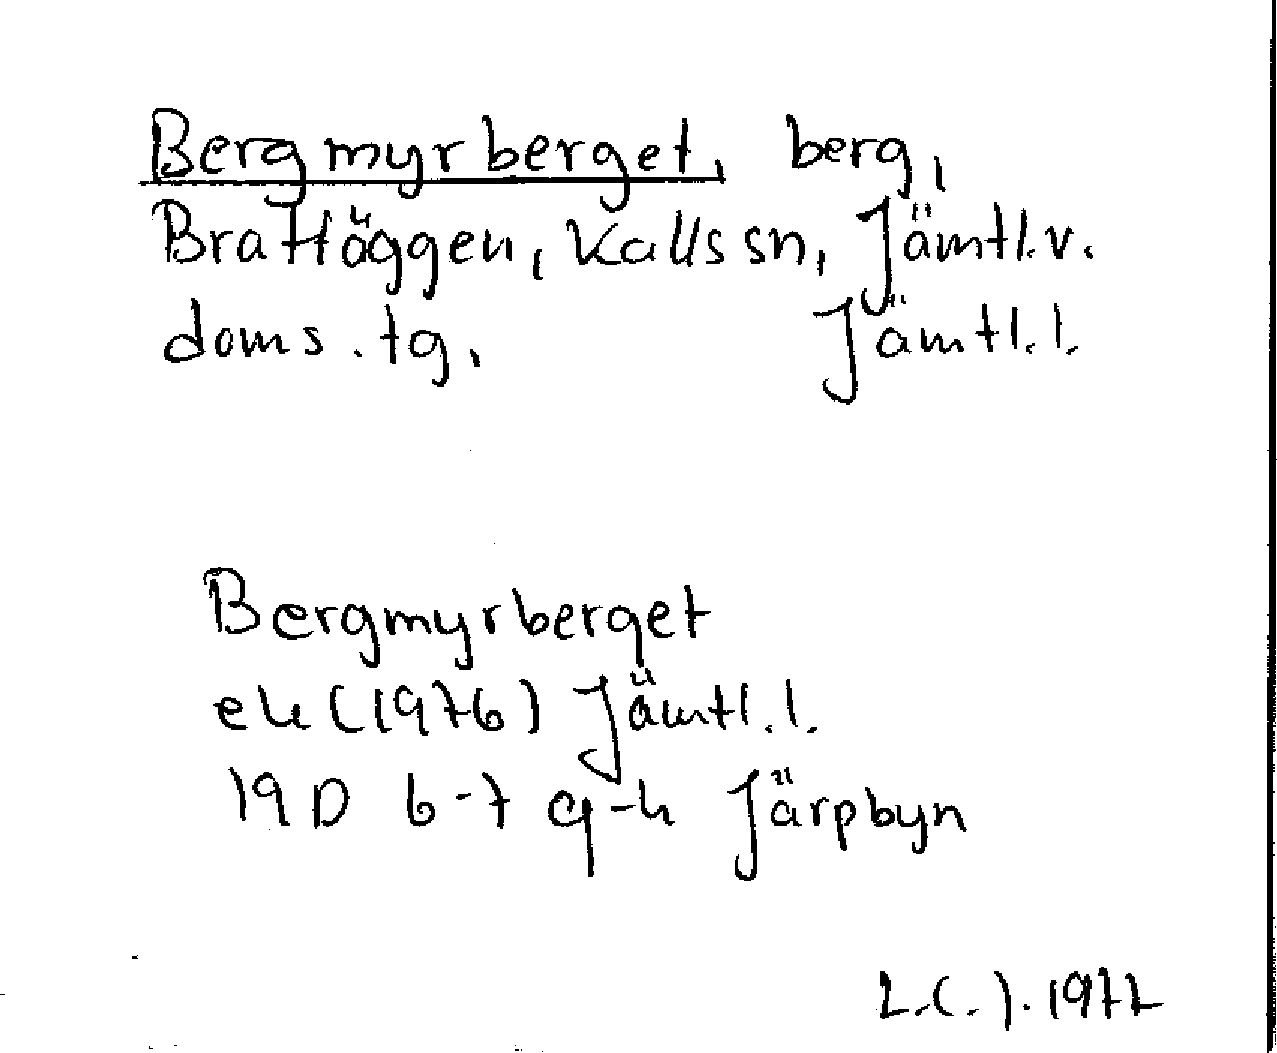 Bergmyrberget, berg,
Brattäggen, Kalls sn, Jämtl.v.
doms.tg. Jämtl.l.
Bergmyrberget
ek (1976) Jämtl.l.
19D 6-7 g-h Järpbyn